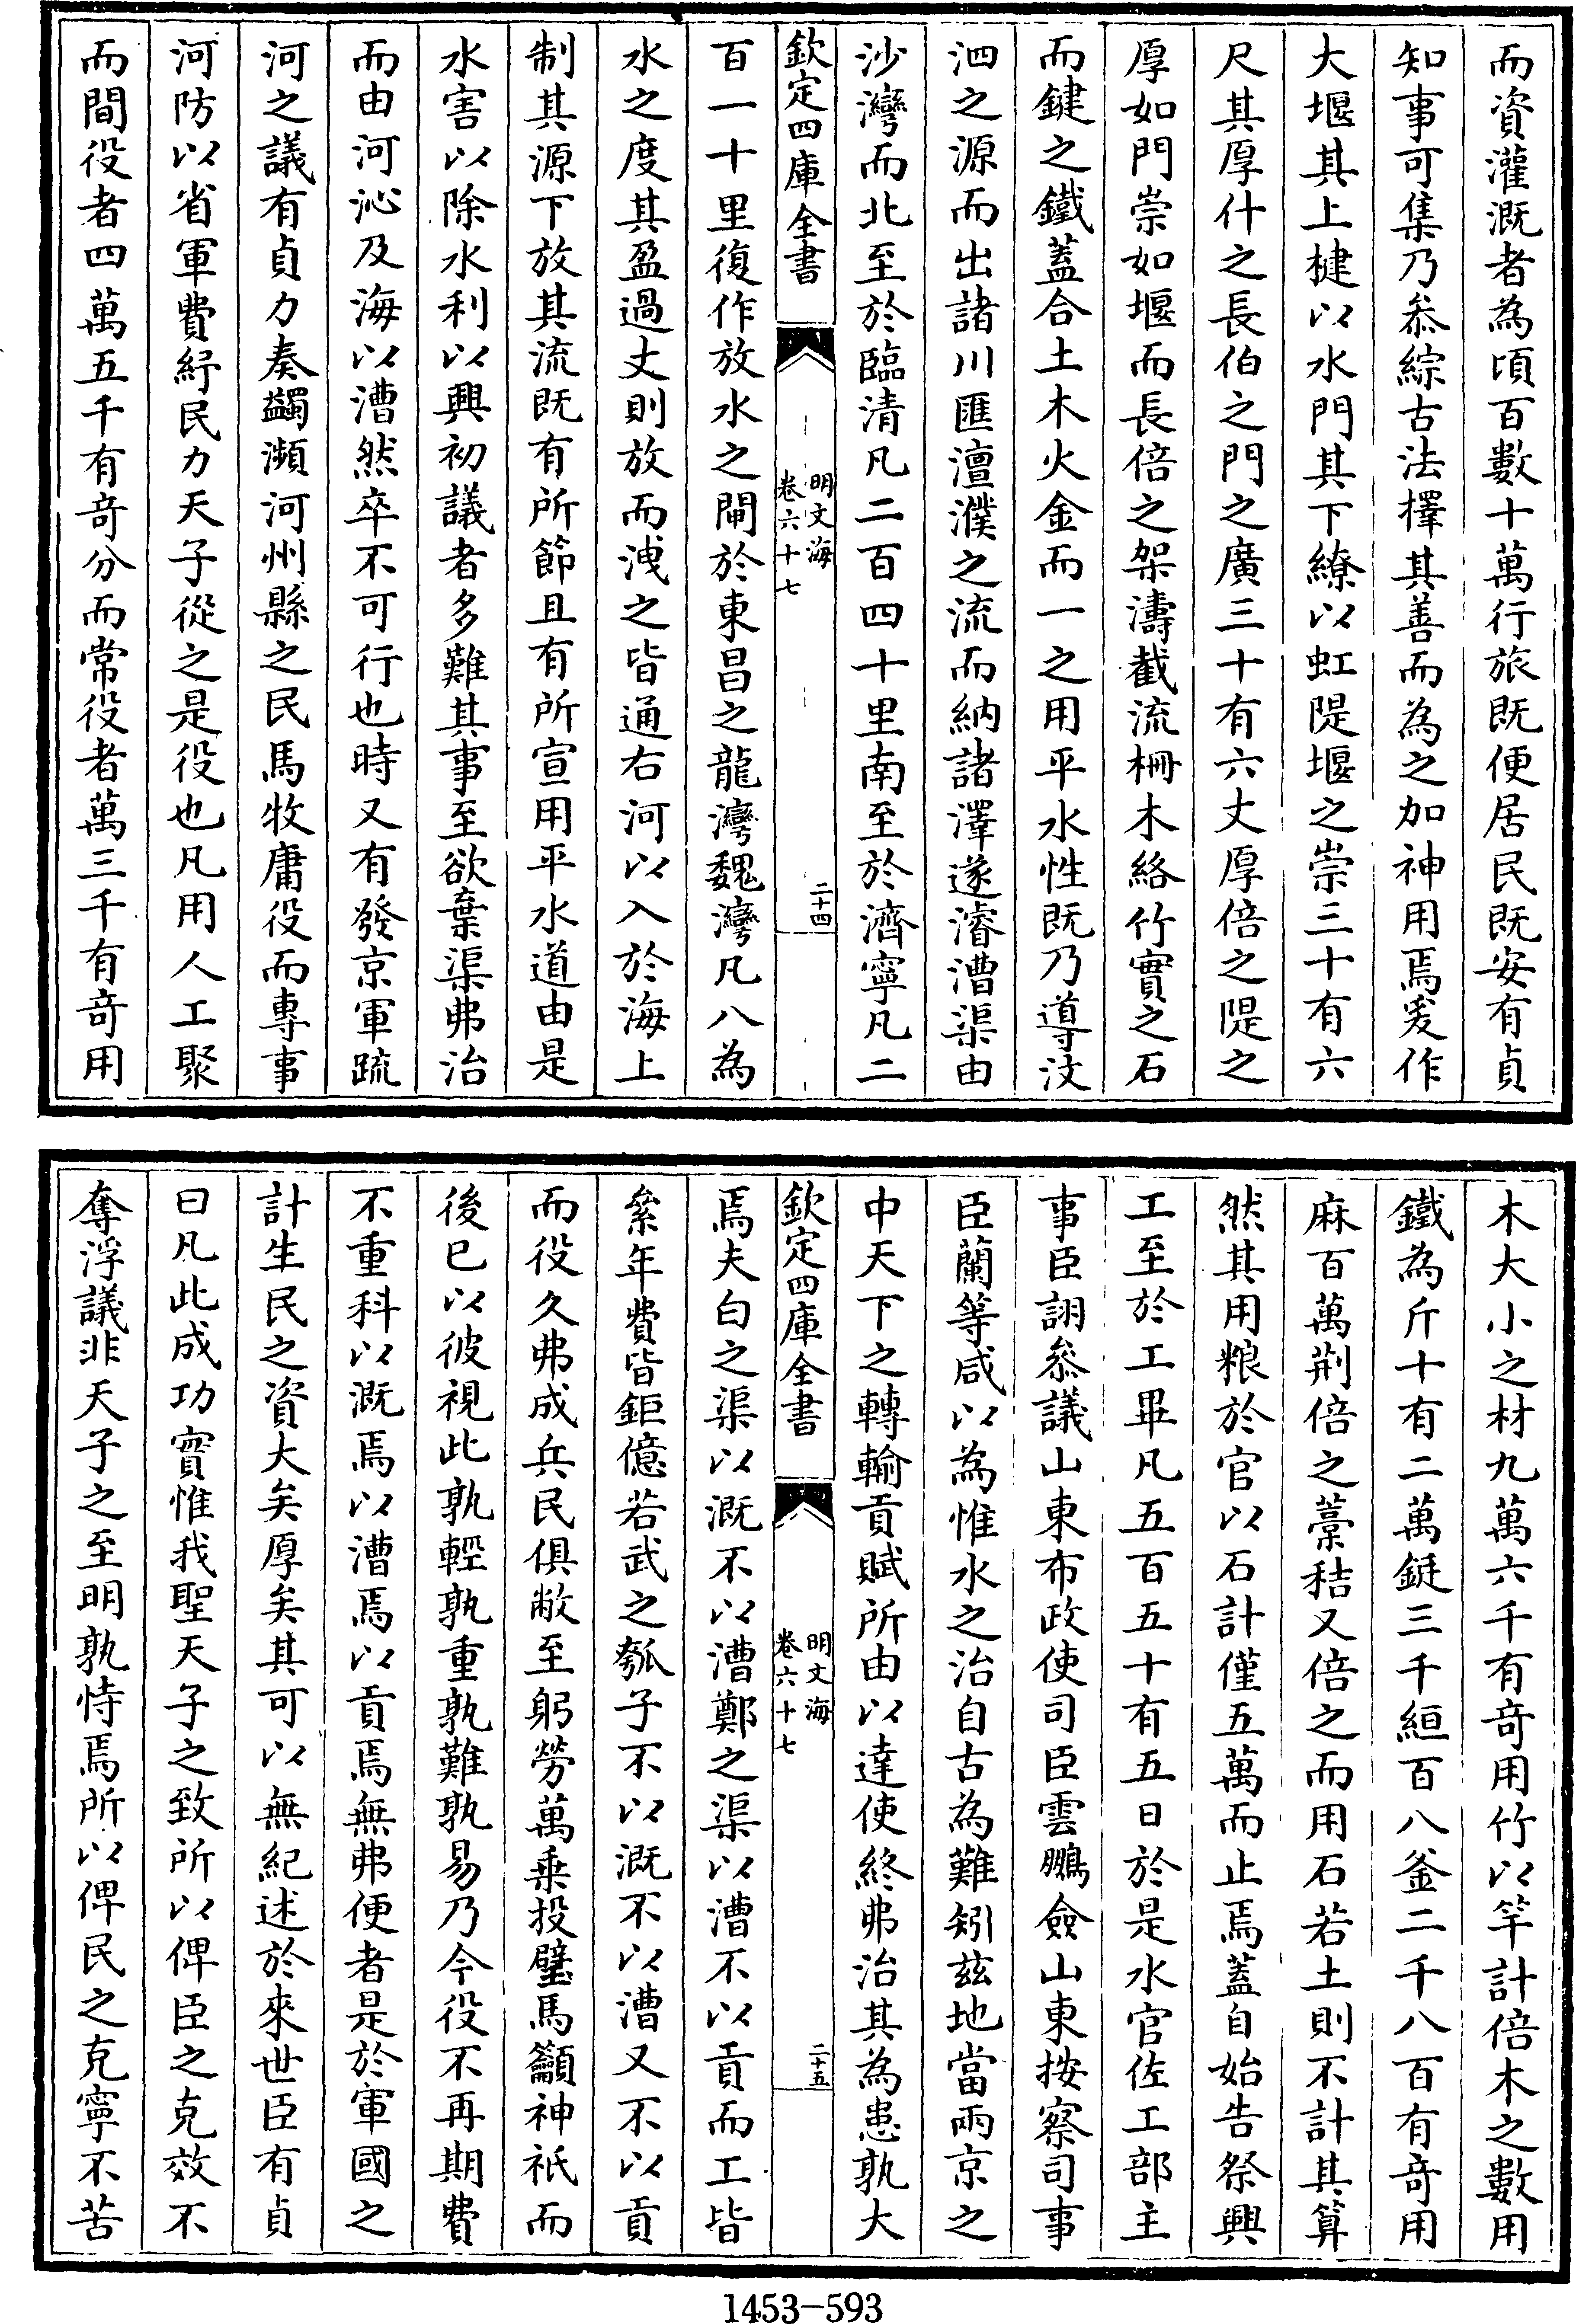 而資灌溉者為頃百數十萬行旅既便居民既安有貞
知事可集乃叅綜古法擇其善而為之加神用焉爰作
大堰其上楗以水門其下繚以虹隄堰之崇三十有六
尺其厚什之長伯之門之廣三十有六丈厚倍之隄之
厚如門崇如堰而長倍之架濤截流柵木絡竹實之石
而鍵之鐵蓋合土木火金而一之用平水性既乃導汶
泗之源而出諸川匯澶濮之流而納諸澤遂濬漕渠由
沙灣而北至於臨清凡二百四十里南至於濟寧凡二
欽定四庫全書
明文海
卷六十七
二十四
百一十里復作放水之閘於東昌之龍灣魏灣凡八為
水之度其盈過丈則放而洩之皆通右河以入於海上
制其源下放其流既有所節且有所宣用平水道由是
水害以除水利以興初議者多難其事至欲棄渠弗治
而由河沁及海以漕然卒不可行也時又有發京軍疏
河之議有貞力奏蠲瀕河州縣之民馬牧庸役而專事
河防以省軍費紓民力天子從之是役也凡用人工聚
而間役者四萬五千有竒分而常役者萬三千有竒用
木大小之材九萬六千有竒用竹以竿計倍木之數用
鐵為斤十有二萬鋌三千絙百八釜二千八百有竒用
麻百萬荆倍之藁秸又倍之而用石若土則不計其算
然其用粮於官以石計僅五萬而止焉蓋自始告祭興
工至於工畢凡五百五十有五日於是水官佐工部主
事臣詡叅議山東布政使司臣雲鵬僉山東按察司事
臣蘭等咸以為惟水之治自古為難矧茲地當兩京之
中天下之轉輸貢賦所由以達使終弗治其為患孰大
欽定四庫全書
明文海
卷六十七
二十五
焉夫白之渠以溉不以漕鄭之渠以漕不以貢而工皆
絫年費皆鉅億若武之瓠子不以溉不以漕又不以貢
而役久弗成兵民俱敝至躬勞萬乗投璧馬籲神祇而
後已以彼視此孰輕孰重孰難孰易乃今役不再期費
不重科以溉焉以漕焉以貢焉無弗便者是於軍國之
計生民之資大矣厚矣其可以無紀述於來世臣有貞
曰凡此成功實惟我聖天子之致所以俾臣之克效不
奪浮議非天子之至明孰恃焉所以俾民之克寧不苦
1453-593